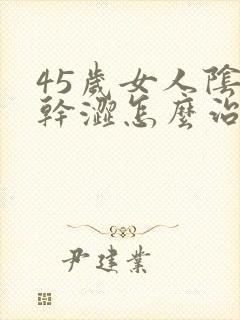 45歲女人陰
幹澀怎麼治
尹建業